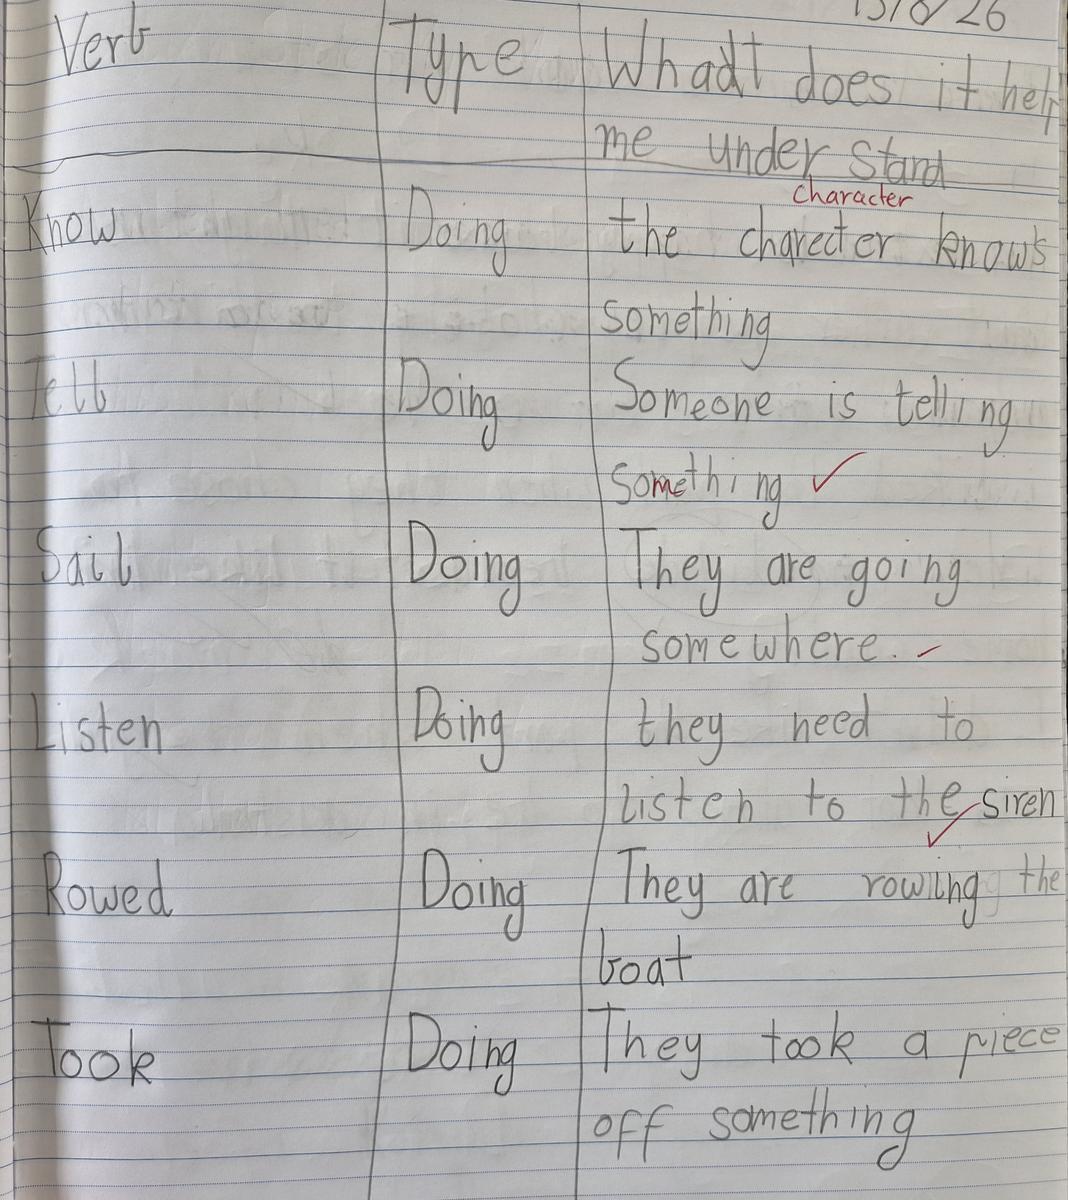 Verb Type Whadt does it help
me under stand
character
Know Doing the charecter knows
something
Tell Doing Someone is telling
something
Sail Doing They are going
somewhere.
Listen Doing they need to
Listen to the siren
Rowed Doing They are rowing the
boat
Took Doing They took a piece
off something